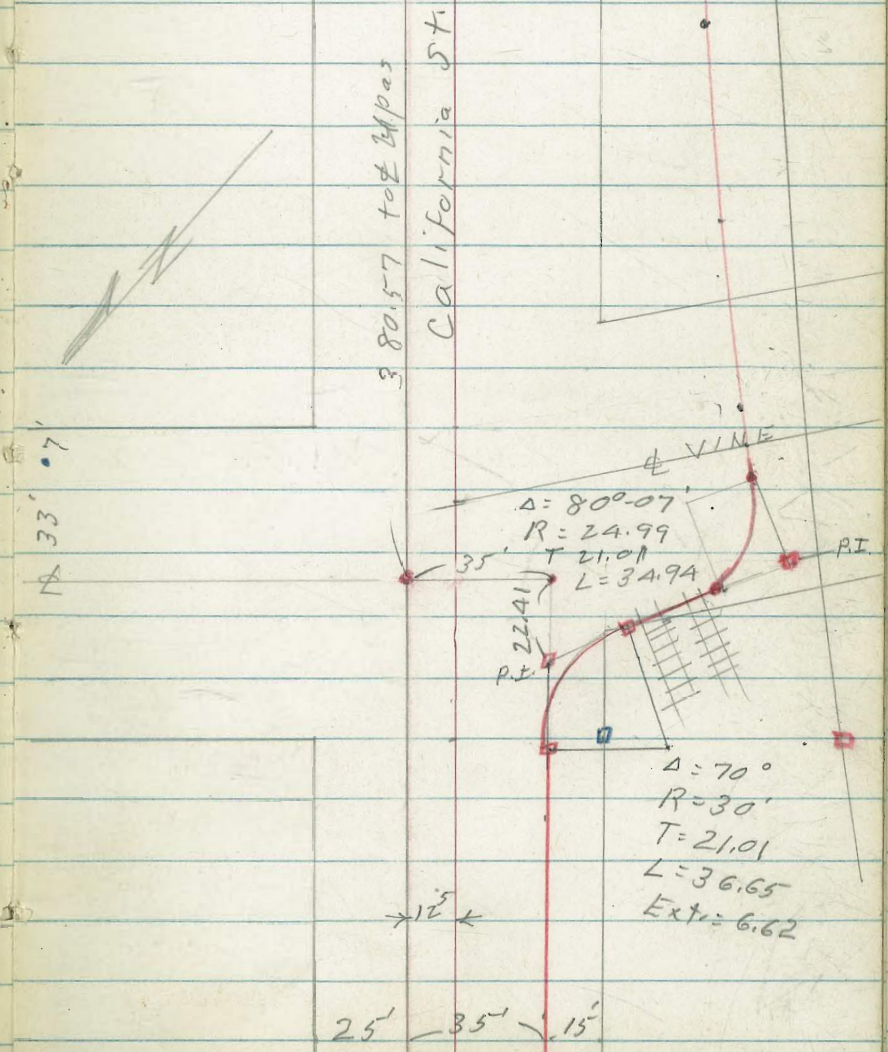 380.57
California St.
N
℄ VINE
Δ = 80°-07'
R = 24.99
T 21.01
L = 34.94
P.I.
33'
35'
22.41
P.I.
Δ = 70°
R = 30'
T = 21.01
L = 36.65
Ext. = 6.62
12⁵
25' 35' 15'